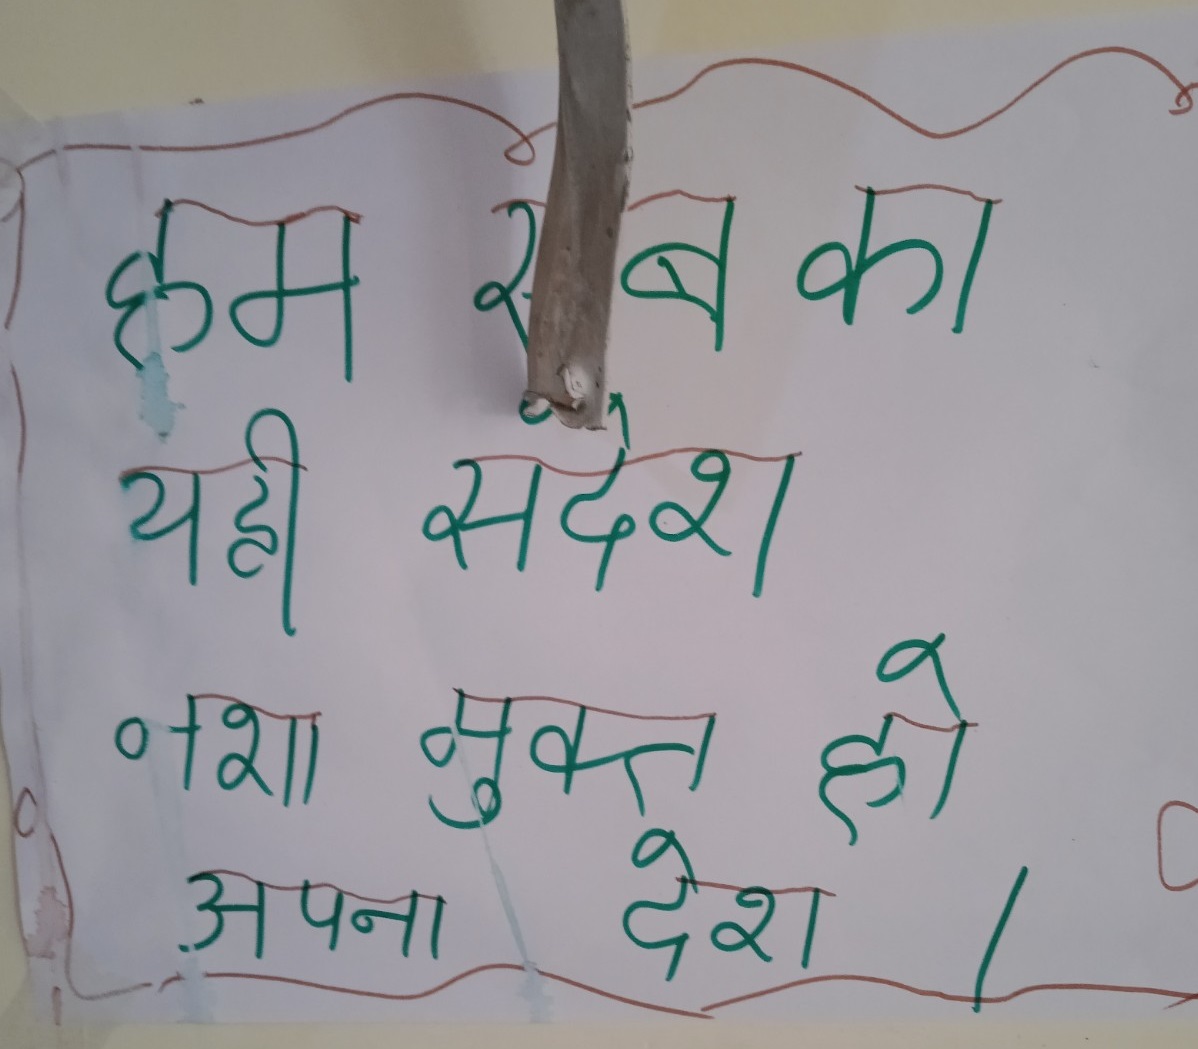 हम सब का
यही संदेश
नशा मुक्त हो
अपना देश ।